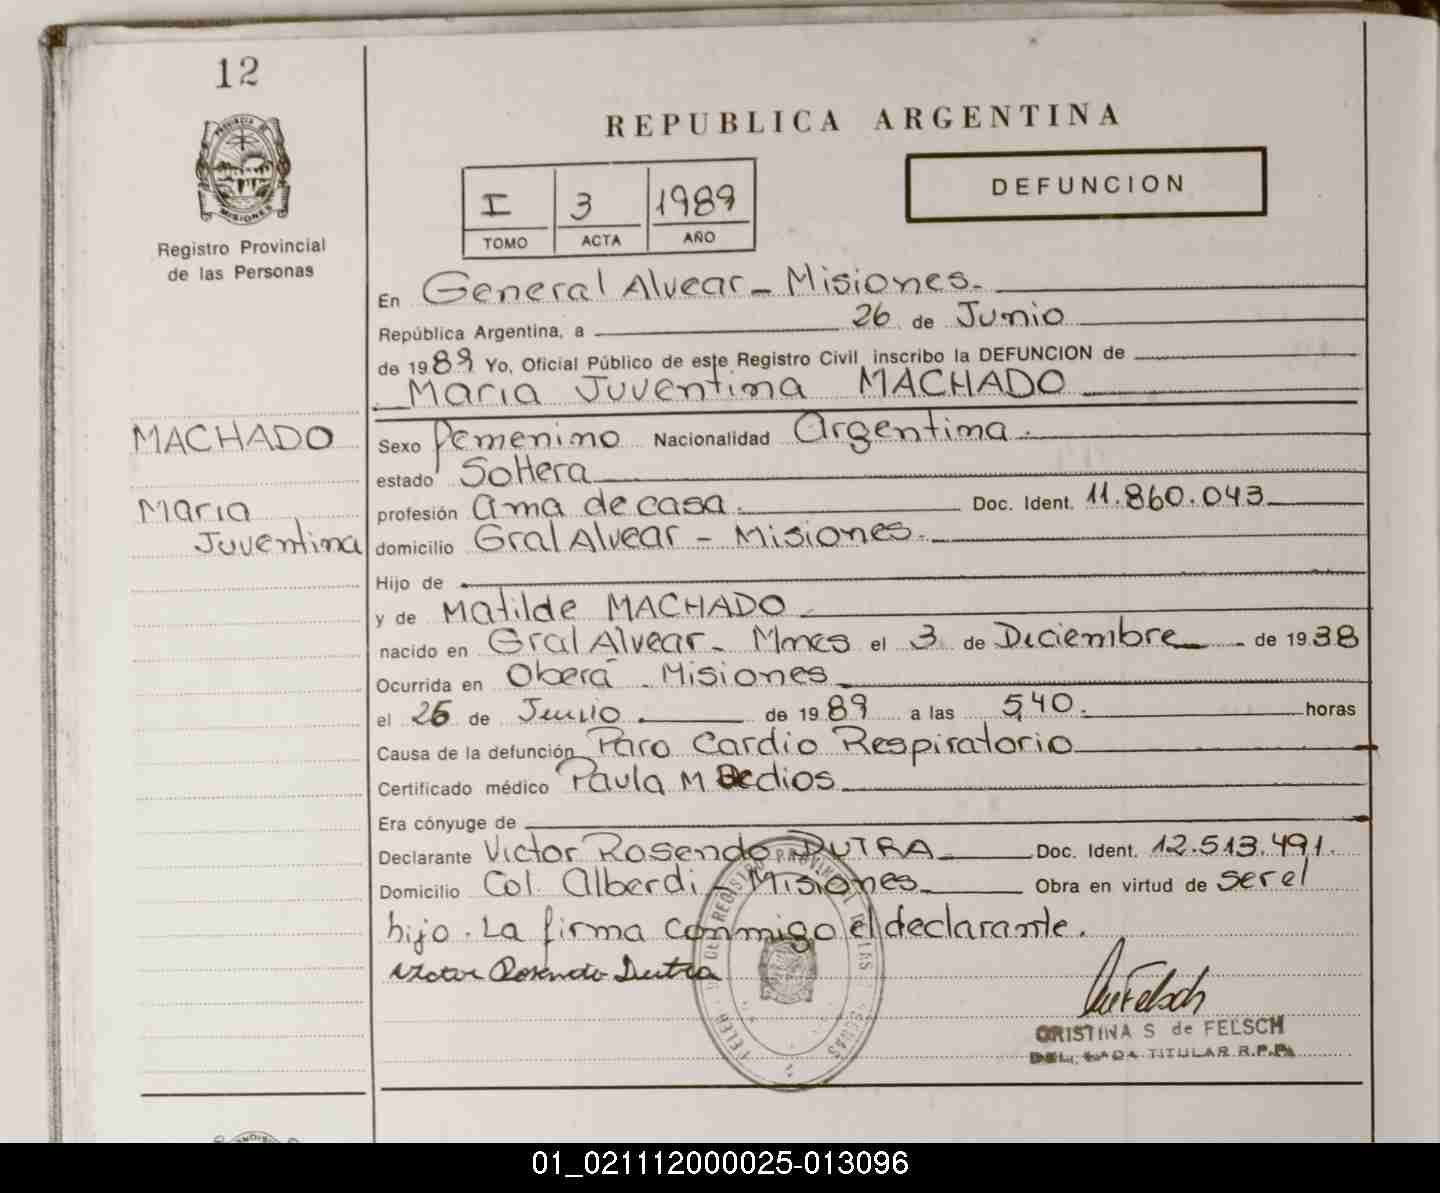 12
PROVINCIA DE
MISIONES
Registro Provincial
de las Personas
REPUBLICA ARGENTINA
I 3 1989
TOMO ACTA AÑO
DEFUNCION
En General Alvear - Misiones.
República Argentina, a 26 de Junio
de 1989 Yo, Oficial Público de este Registro Civil inscribo la DEFUNCION de
Maria Juventina MACHADO
MACHADO
Maria
Juventina
Sexo femenino Nacionalidad Argentina.
estado Soltera
profesión ama de casa. Doc. Ident. 11.860.043
domicilio Gral Alvear - Misiones.
Hijo de
y de Matilde MACHADO
nacido en Gral Alvear - Mnes el 3 de Diciembre de 1938
Ocurrida en Oberá - Misiones
el 26 de Junio de 1989 a las 5,40. horas
Causa de la defunción Paro Cardio Respiratorio
Certificado médico Paula M
Era cónyuge de
Declarante Victor Rosendo DUTRA Doc. Ident. 12.513.491.
Domicilio Col. Alberdi - Misiones Obra en virtud de ser el
hijo. La firma conmigo el declarante.
Victor Rosendo Dutra
CRISTINA S de FELSCH
DELEGADA TITULAR R.P.P.
01_021112000025-013096